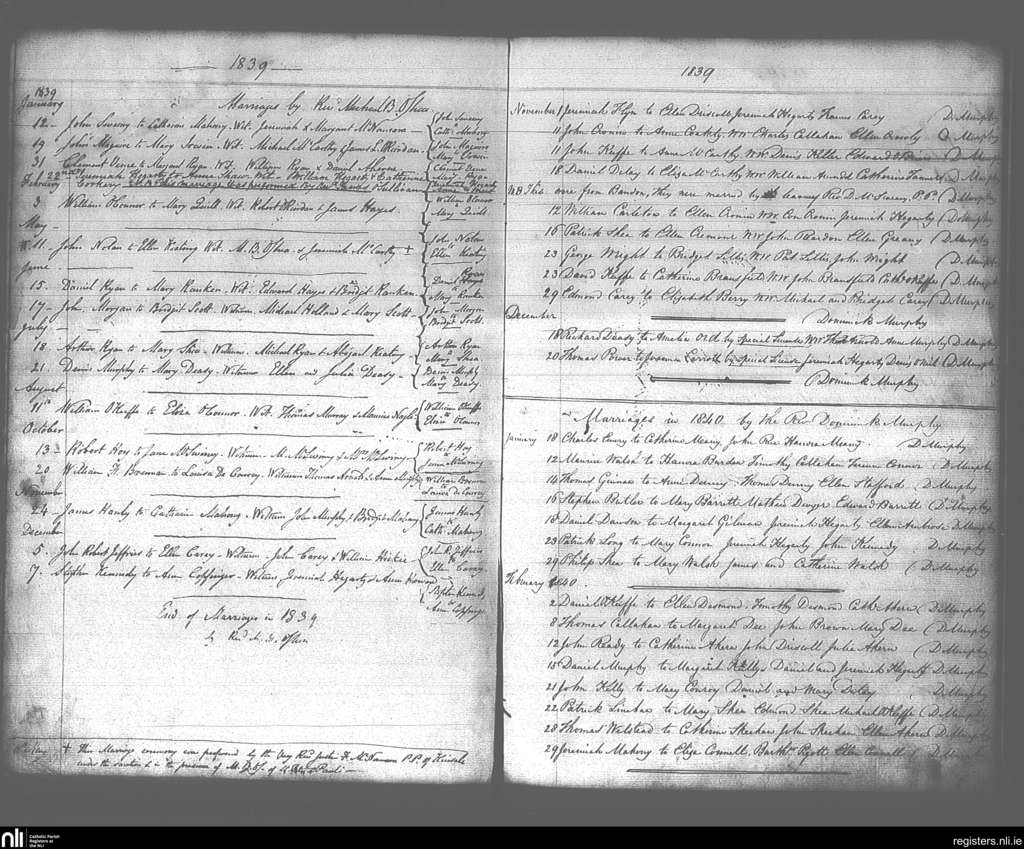 1839
1839
January
Marriages by Revd Michael B. O'Shea
12 - John Sweeny to Catherine Mahony. Wit. Jeremiah & Margaret McNamara - John Sweeny
Cathe Mahony
19 - John Maguire to Mary Wit. Michael McCarthy & James L. Riordan. John Maguire
Mary
31 Clement to Margaret Ryan. Wit. William Ryan & Daniel Ahearn Clement
22nd Jeremiah Hegarty to Anna Shaw. Wit. William Hegarty & Catherine
February this marriage was performed by
3 William O'Connor to Mary Quill. Wit. Robert Riordan & James Hayes. William O'Connor
Mary Quill.
May -
11 - John Nolan to Ellen Keating Wit. M. B. O'Shea & Jeremiah McCarthy + John Nolan
Ellen Keating
June
15. Daniel Ryan to Mary Ranken. Wit. Edward Hayes & Bridget Ranken. Daniel
Ryan
Mary Ranken
17 - John Morgan to Bridget Scott. Witness, Michael Holland & Mary Scott - John Morgan
Bridget Scott.
July -
18 . Arthur Ryan to Mary Shea - Witness. Michael Ryan & Abigail Keating - Arthur Ryan
Mary Shea.
21 Denis Murphy to Mary Deasy. Witness Ellen and Julia Deasy. - Denis Murphy
Mary Deasy.
August
11th William O'Keeffe to Eliza O'Connor. Wit. Thomas Murray & Maurice Nagle William O'Keeffe
Eliza O'Connor
October
13 - Robert Hoy to Jane McSwiney. Witness. M. McSwiney & McSwiney Robert Hoy
Jane McSwiney
20 William H. Bowman to Louisa De Courcy. Witness Thomas & Anne Murphy William Bowman
Louisa De Courcy
November
24 - James Hanly to Catherine Mahony - Witness John Murphy & Bridget Mahony James Hanly
Cathe Mahony
December
5. John Robert Jeffries to Ellen Carey - Witness - John Carey & William Hickie - John R. Jeffries
to
Ellen Carey.
7. Stephen Kennedy to Ann Coppinger - Witness, Jeremiah Hegarty & Anne Stephen Kennedy
Ann Coppinger
End of Marriages in 1839
by Revd M. B. O'Shea
+ This Marriage ceremony was performed by the Very Revd Justin F. McNamara P.P. of Kinsale
under the sanction & in the presence of
1839
November Jeremiah Flyn to Ellen Driscoll Jeremiah Hegarty Hanora Carey (D. Murphy
11 John Cronin to Anne Wit Charles Callahan Ellen D. Murphy
11 John Keeffe to Anne McCarthy Wit Denis Keller Edward D. Murphy
18 Daniel Daley to Eliza McCarthy Wit William Catherine D. Murphy
NB This were from Bandon, they were married by leave Rev D. McSwiney P.P. (D. Murphy
12 William Carleton to Ellen Cronin Wit Con Cronin Jeremiah Hegarty (D. Murphy
16 Patrick Shea to Ellen Wit John Riordon Ellen Greany (D. Murphy
23 George Wright to Bridget Wit Pat John Wright (D. Murphy
23 David Keeffe to Catherine Bransfield Wit John Bransfield Cathe O'Keeffe (D. Murphy
29 Edmond Carey to Elizabeth Berry Wit Michael and Bridget Carey (D. Murphy
Dominick Murphy
December
18 Richard Deasy to Amelia by Special License Wit Anne Murphy D. Murphy
20 Thomas Power to by Special License Jeremiah Hegarty Denis O'Neil (D. Murphy
Dominick Murphy
Marriages in 1840 by the Rev Dominick Murphy
January 18 Charles to Catherine Meany John Hanora Meany D. Murphy
12 Maurice Walsh to Hanora Burden Timothy Callahan Connor (D. Murphy
14 Thomas to Anne Denny Thomas Denny Ellen Stafford (D. Murphy
16 Stephen Butler to Mary Barrett Mathew Dwyer Edward Barrett (D. Murphy
18 Daniel Dawson to Margaret Gilman Jeremiah Hegarty Ellen Ambrose D. Murphy
23 Patrick Long to Mary Connor Jeremiah Hegarty John Kennedy (D. Murphy
29 Philip Shea to Mary Walsh James and Catherine Walsh (D. Murphy
February 1840
2 Daniel O'Keeffe to Ellen Desmond Timothy Desmond Cathe Ahern (D. Murphy
8 Thomas Callahan to Margaret Dee John Brown Mary Dee (D. Murphy
12 John Ready to Catherine Ahern John Driscoll Julia Ahern (D. Murphy
15 Daniel Murphy to Margaret Kelly Daniel and Jeremiah Hegarty D. Murphy
21 John Kelly to Mary Conroy Daniel and Mary Daley D. Murphy
22 Patrick Linehan to Mary Shea Edmond Shea Michael O'Keeffe (D. Murphy
28 Thomas Welstead to Catherine Sheehan John Sheehan Ellen Ahern D. Murphy
29 Jeremiah Mahony to Eliza Connell Barthw Ellen Connell D. Murphy
nli
Catholic Parish
Registers at
the NLI
registers.nli.ie